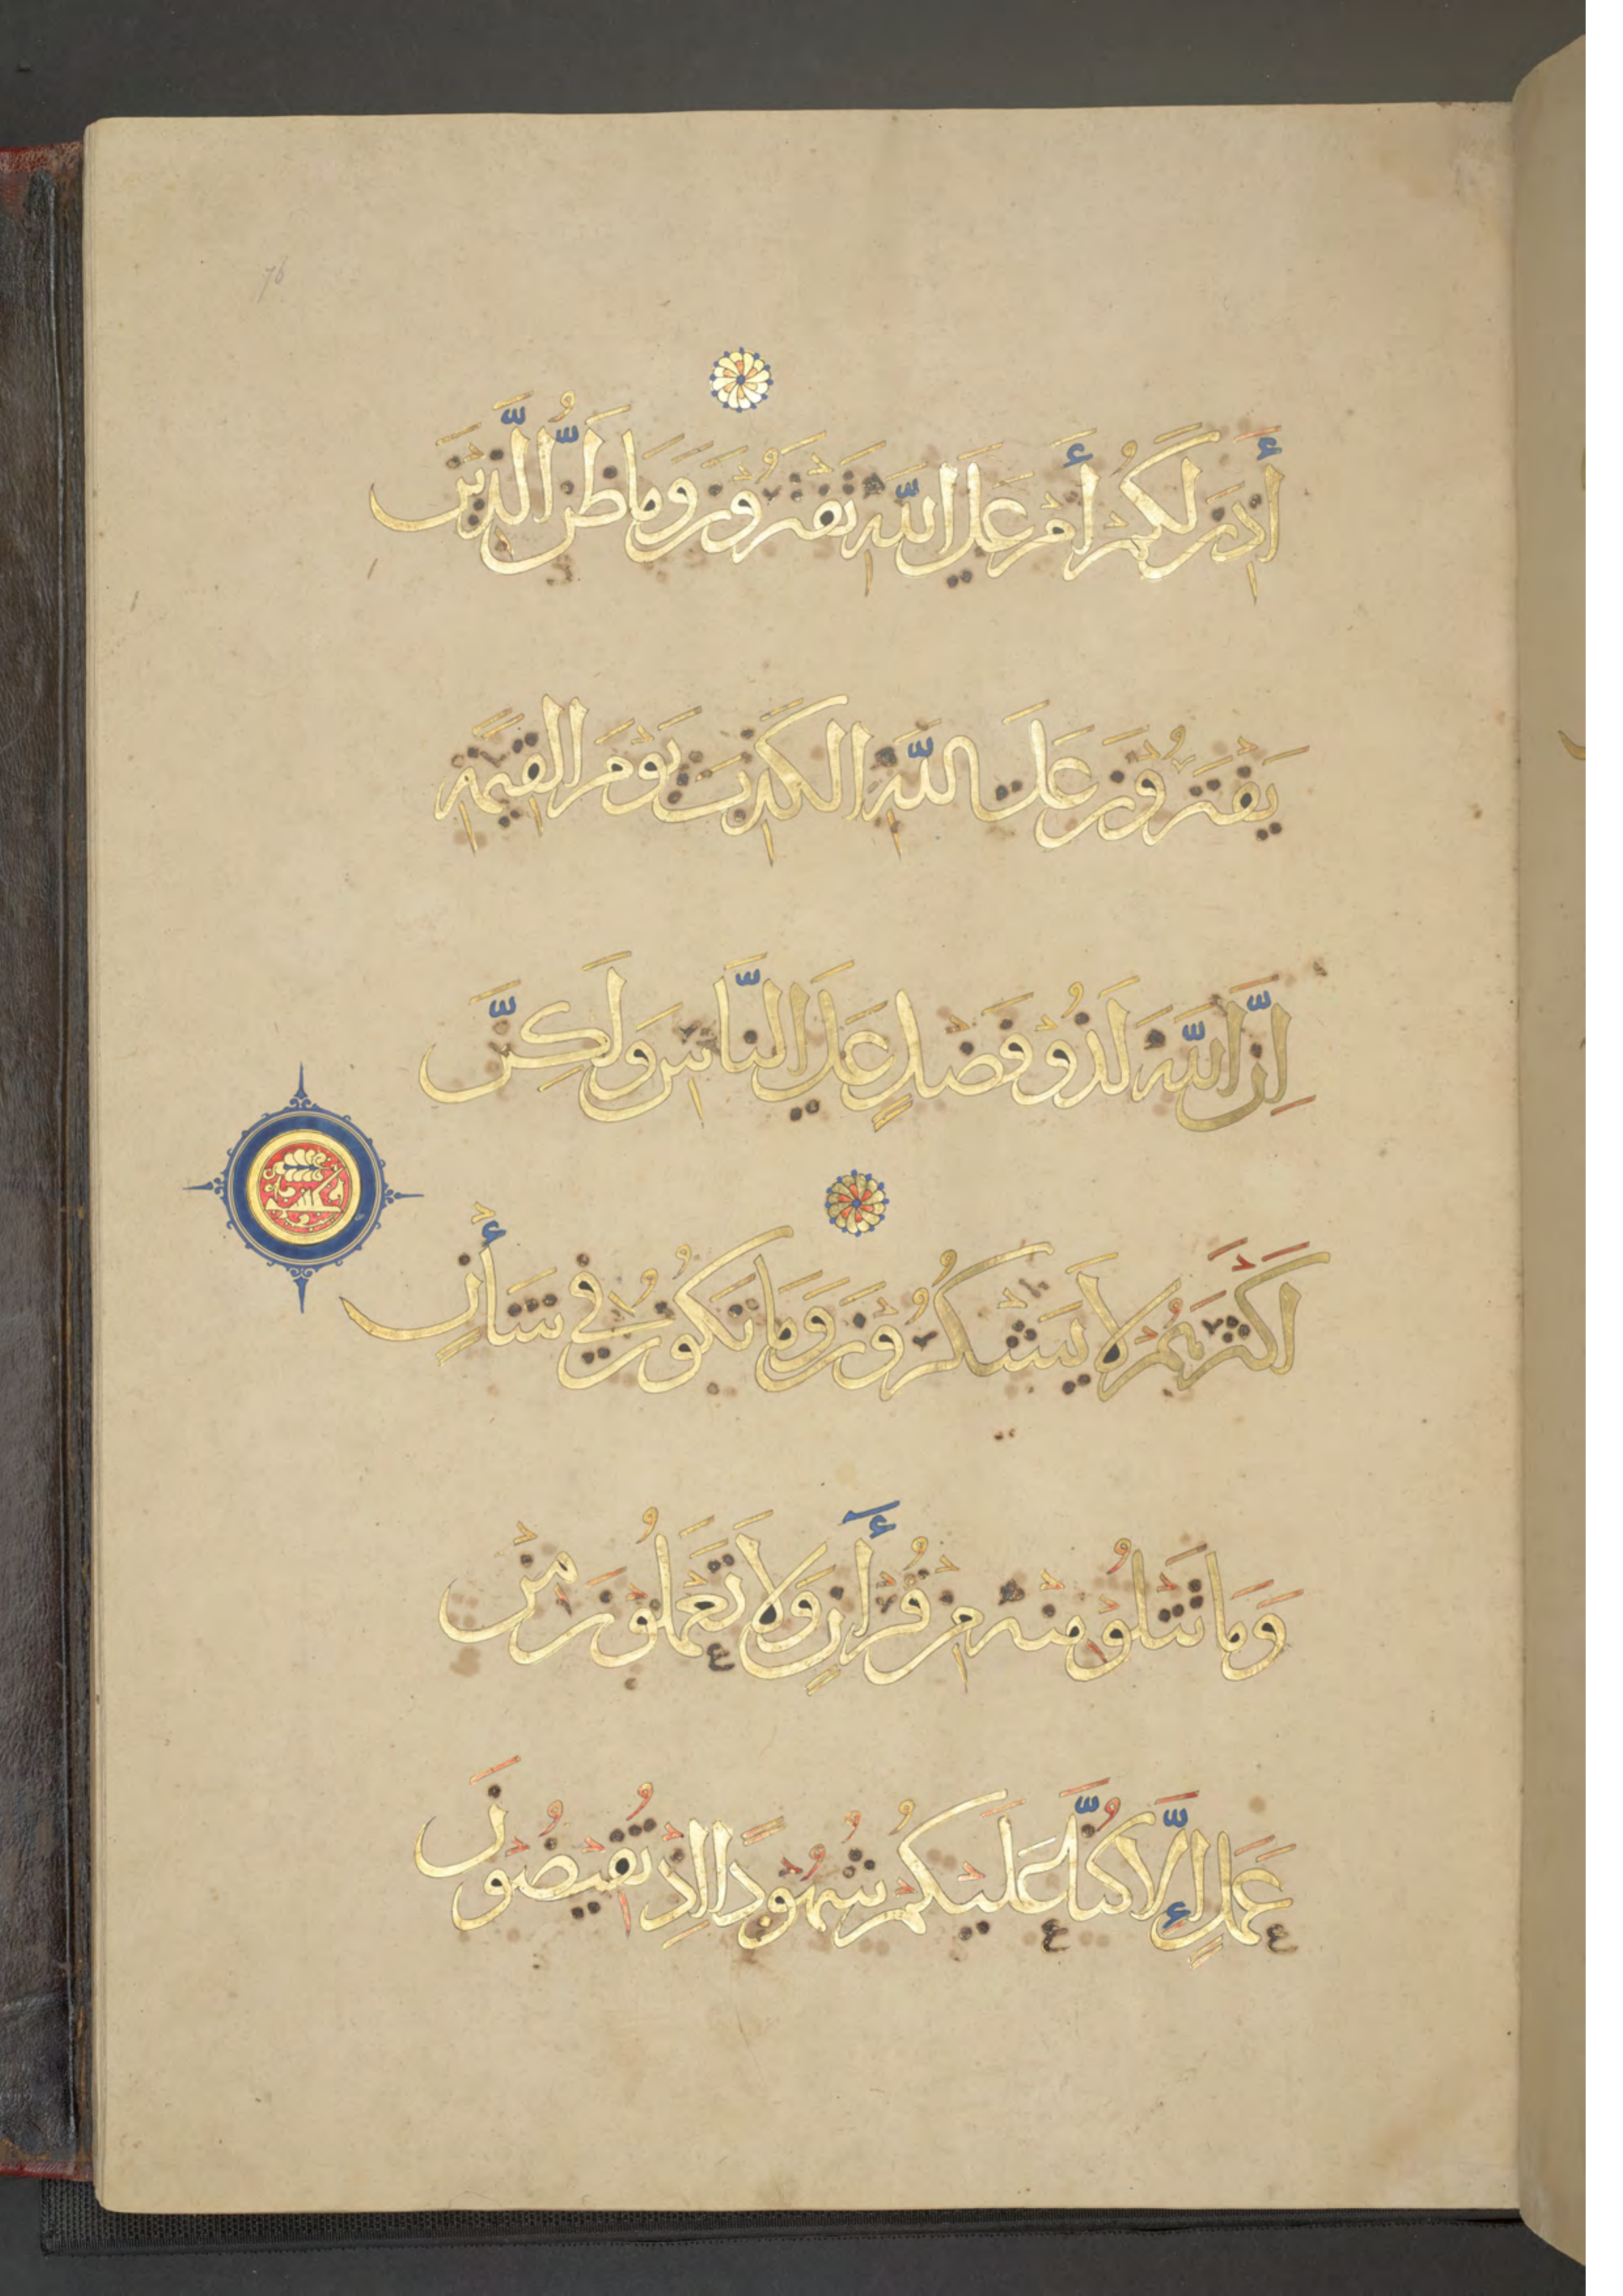 76
أَذِنَ لَكُمْ أَمْ عَلَى اللَّهِ تَفْتَرُونَ وَمَا ظَنُّ الَّذِينَ
يَفْتَرُونَ عَلَى اللَّهِ الْكَذِبَ يَوْمَ الْقِيَمَةِ
إِنَّ اللَّهَ لَذُو فَضْلٍ عَلَى النَّاسِ وَلَكِنَّ
أَكْثَرَهُمْ لَا يَشْكُرُونَ وَمَا تَكُونُ فِي شَأْنٍ
وَمَا تَتْلُو مِنْهُ مِنْ قُرْأَنٍ وَلَا تَعْمَلُونَ مِنْ
عَمَلٍ إِلَّا كُنَّا عَلَيْكُمْ شُهُودًا إِذْ تُفِيضُونَ